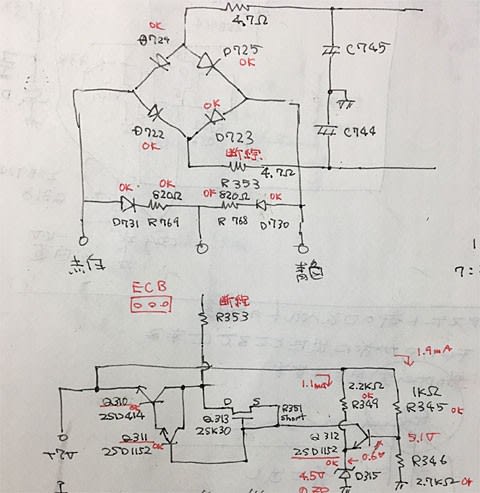 4.7Ω
OK
D724
D725
OK
C745
D722
OK
OK
D723
断線
C744
4.7Ω
R353
OK
OK
820Ω
OK
820Ω
OK
D731
R769
R768
D730
青色
ECB
断線
R353
7:
1.9mA
1.1mA
2.2KΩ
OK
R349
1KΩ
R345
OK
Q310
2SD414
D
S
Q313
2SK30
R351
short
Q311
OK
2SD1152
Q312
2SD1152
OK
0.6V
5.1V
R346
2.7KΩ
OK
4.5V
D315